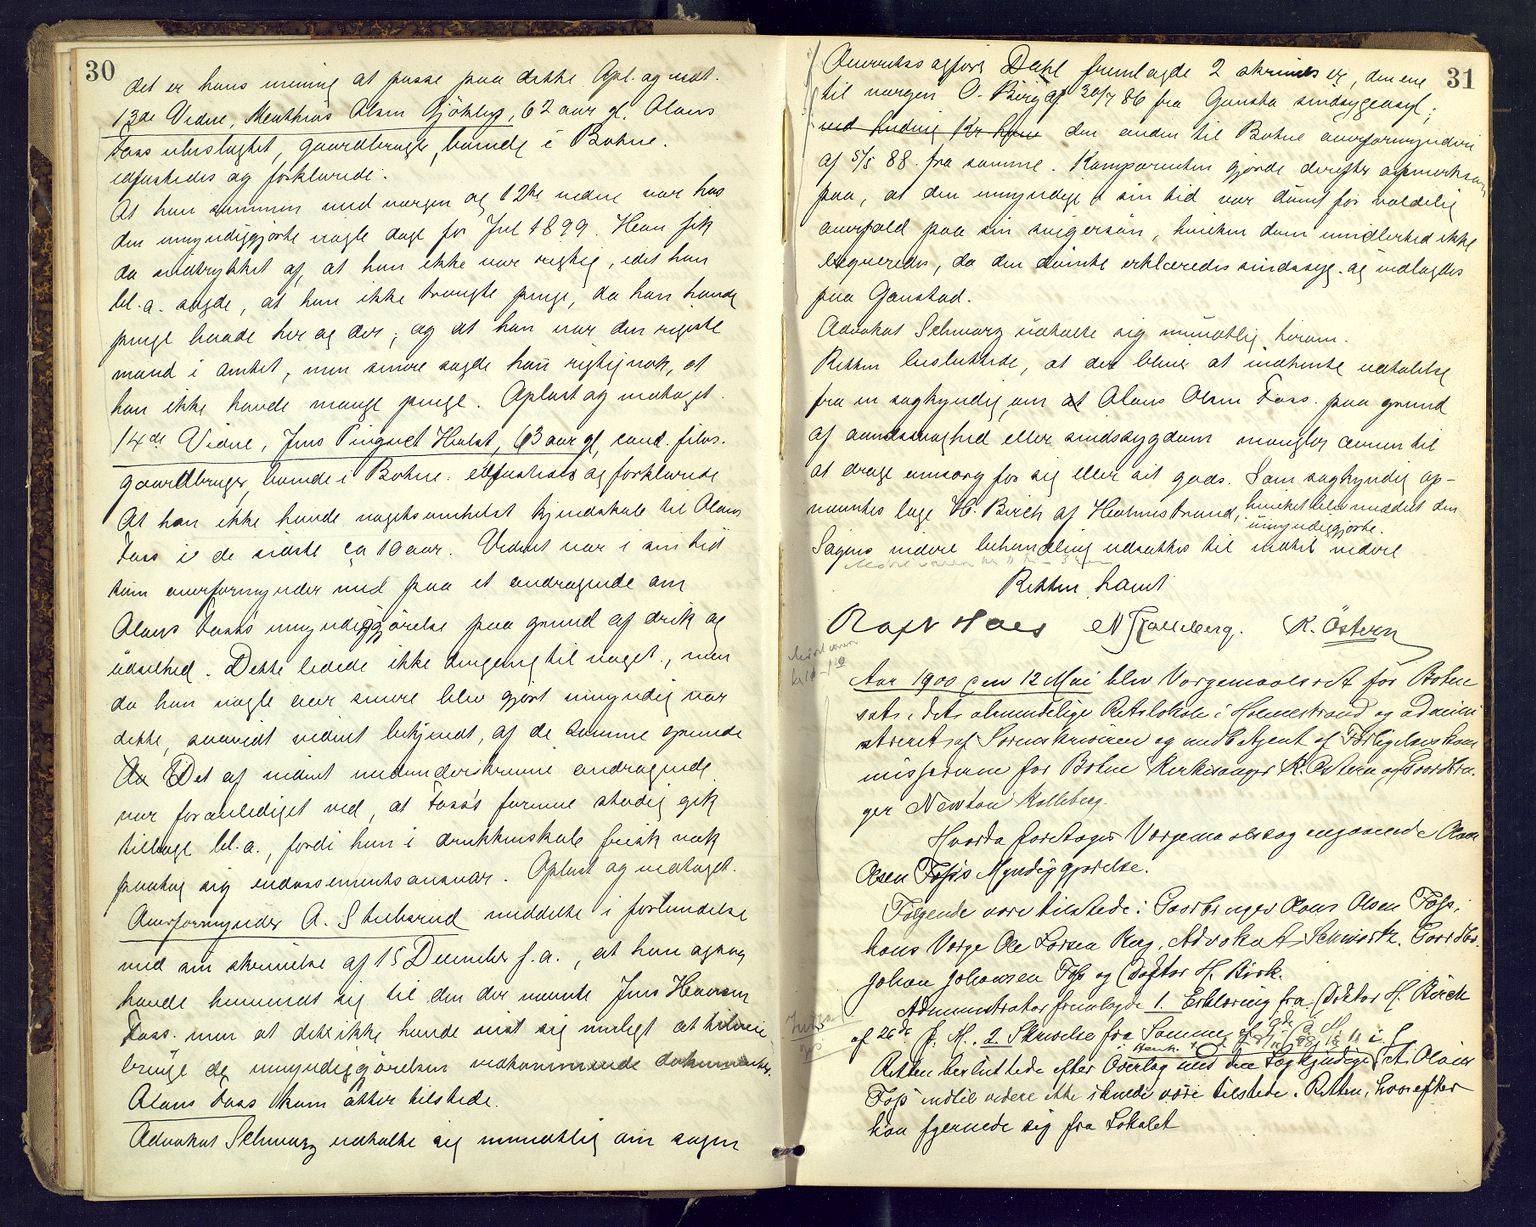 30
det er hans mening at passe paa dette. Opl. og vedt.
13de Vidne, Matthias Olsen Gjökley, 62 aar gl. Olaus
Foss ubeslægtet, gaardbruger, boende i Botne.
edfæstedes og forklarede:
At han sammen med værgen og 12te vidne var hos
den umyndiggjorte nogle dage før Jul 1899. Han fik
da indtrykket af, at han ikke var rigtig, idet han
bl. a. sagde, at han ikke trængte penge, da han havde
penge baade her og der; og at han var den rigeste
mand i amtet, men senere sagde han rigtignok, at
han ikke havde mange penge. Oplæst og vedtaget.
14de Vidne, Jens Pinquet Hulst, 63 aar gl, cand. filos.
gaardbruger, boende i Botne. edfæstedes og forklarede
At han ikke havde nogetsomhelst kjendskab til Olaus
Foss i de sidste ca 10 aar. Vidnet var i sin tid
som overformynder med paa et andragende om
Olaus Foss's umyndiggjørelse paa grund af drik og
ødselhed. Dette ledede ikke dengang til noget, men
da han nogle aar senere blev gjort umyndig var
dette, saavidt vidnet bekjendt, af de samme grunde
Det af vidnet medunderskrevne andragende
var foranlediget ved, at Foss's formue stadig gik
tilbage bl. a., fordi han i drukkenskab frisk væk
paatog sig endossementsansvar. Oplæst og vedtaget.
Overformynder A. Stubsrud meddelte i forbindelse
med sin skrivelse af 15 December f. a., at han ogsaa
havde henvendt sig til den der nævnte Jens Hansen
Foss. men at det ikke havde vist sig muligt at tilveie
bringe de umyndiggjørelsen vedkommende dokumenter.
Olaus Foss kom atter tilstede.
Advokat Schwarz udtalte sig mundtlig om sagen
31
Overretssagfører Dahl fremlagde 2 skrivelser, den ene
til værgen O. Berg af 30/7 86 fra Gaustad sindsygeasyl;
den anden til Botne overformynderi
af 5/5 88. fra samme. Komparenten gjorde derefter opmerksom
paa, at den umyndige i sin tid var dömt for voldelig
overfald paa sin svigersøn, hvilken dom imidlertid ikke
exqueredes, da den dömte erklæredes sindssyg og indlagdes
paa Gaustad.
Advokat Schwarz udtalte sig mundtlig herom.
Retten besluttede, at der blev at indhente udtalelse
fra en sagkyndig, om Olaus Olsen Foss paa grund
af aandssvaghed eller sindssygdom mangler ævnen til
at drage omsorg for sig eller sit gods. Som sagkyndig op-
nævntes læge H. Birch af Holmestrand, hvilket blev meddelt den
umyndiggjorte.
Sagens videre behandling udsattes til indtil videre
Retten hævet
Olaf N Holleberg. K. Östern
Aar 1900 den 12 Mai blev Vergemaalsret for Botne
sat i det almindelige Retslokale i Holmestrand og admini
streret af Sorenskriveren og med betjent af Forligelseskom
missærerne for Botne Kirkesanger K. Östern og Gaardbru
ger Newton Kolleberg.
Hvorda foretoges Værgemaalssag angaaende Olaus
Olsen Foss's Myndiggjørelse.
Følgende vare tilstede: Gaardbruger Olaus Olsen Foss,
hans Værge Ole Larsen Berg, Advokat Schwartz, Gaardbr.
Johan Johansen Foss og Doktor H. Birch.
Administrator fremlagde 1. Erklæring fra Doktor H. Birch
af 26de f. M. 2 Skrivelse fra Samme af
Retten besluttede efter Overlæg med den Sagkyndige, at Olaus
Foss indtil videre ikke skulde være tilstede i Retten, hvorefter
han fjernede sig fra Lokalet